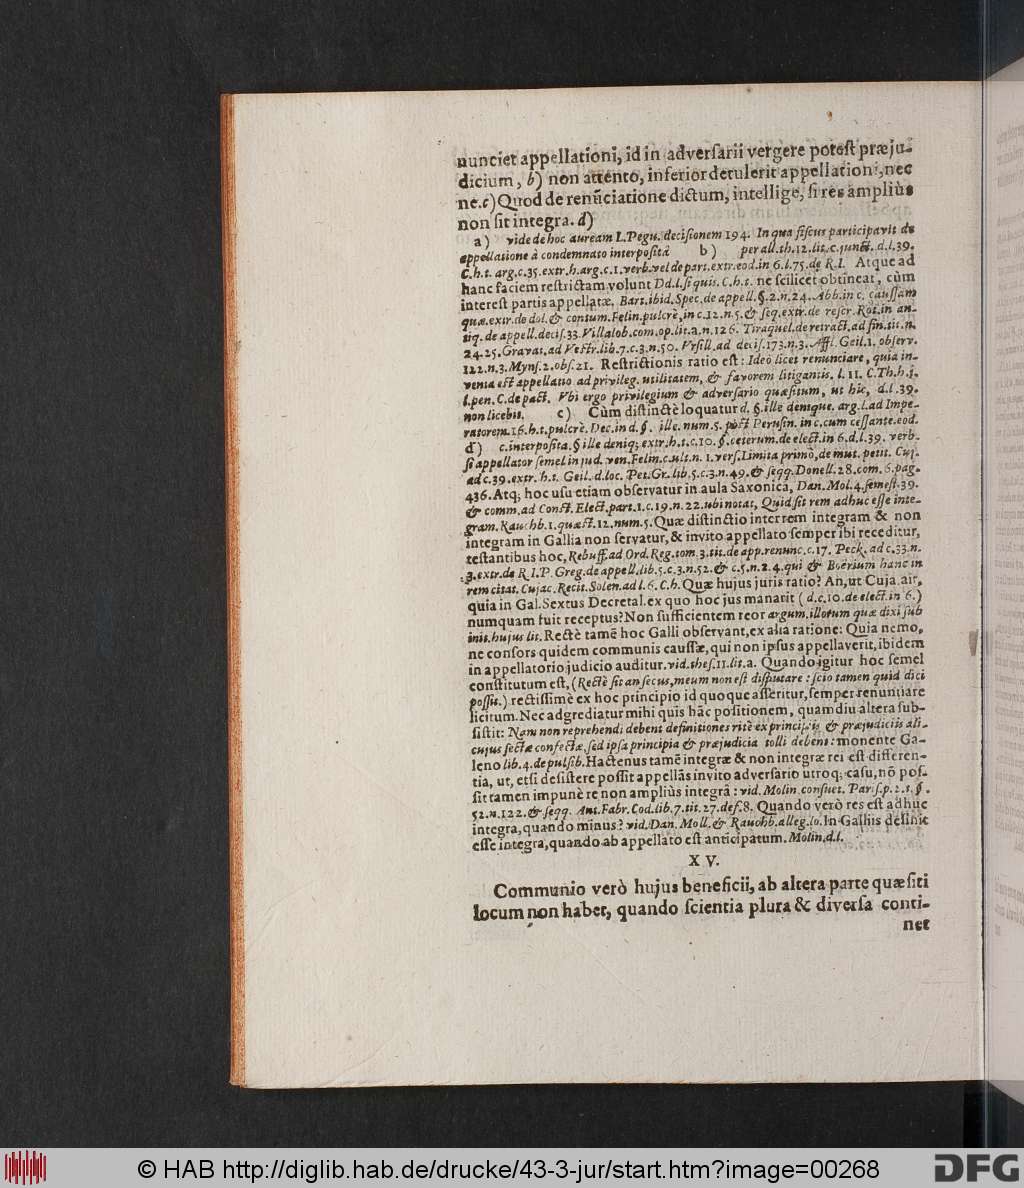 nunciet appellationi, id in adverſarii vergere poteſt præju-
dicium, b) non attento, inferior detulerit appellationi, nec
ne. c) Quod de renũciatione dictum, intellige, ſi res ampliùs
non ſit integra. d)
a) vide de hoc auream L. Pegu. deciſionem 194. In qua fiſcus participavit de
appellatione à condemnato interpoſitâ b) per all. th. 12. lit. c. junct. d. l. 39.
C. h. t. arg. c. 35. extr. h. arg. c. 1. verb. vel de part. extr. eod. in 6. l. 75. de R. I. Atque ad
hanc faciem reſtrictam volunt Dd. l. ſi quis. C. h. t. ne ſcilicet obtineat, cùm
intereſt partis appellatæ. Bart. ibid. Spec. de appell. §. 2. n. 24. Abb. in c. cauſſam
quæ. extr. de dol. & contum. Felin. pulcrè, in c. 12. n. 5. & ſeq. extr. de reſcr. Rot. in an-
tiq. de appell. deciſ. 33. Villalob. com. op. lit. a. n. 126. Tiraquel. de retract. ad fin. tit. n.
24. 25. Gravat. ad Veſtr. lib. 7. c. 3. n. 50. Vrſill. ad deciſ. 173. n. 3. Affl. Geil. 1. obſerv.
122. n. 3. Mynſ. 2. obſ. 21. Reſtrictionis ratio eſt: Ideò licet renunciare, quia in-
venta eſt appellatio ad privileg. utilitatem, & favorem litigantis. l. 11. C. Th. h. t.
l. pen. C. de pact. Vbi ergo privilegium & adverſario quæſitum, ut hic, d. l. 39.
non licebit. c) Cùm diſtinctè loquatur d. §. ille denique. arg. l. ad Impe-
ratorem. 16. h. t. pulcrè. Dec. in d. §. ille. num. 5. pòſt Peruſin. in c. cum ceſſante. eod.
d) c. interpoſita. § ille deniq; extr. h. t. c. 10. §. ceterum. de elect. in 6. d. l. 39. verb.
ſi appellator ſemel in jud. ven. Felin. c. ult. n. 1. verſ. Limita primò, de mut. petit. Cuj.
ad c. 39. extr. h. t. Geil. d. loc. Pet. Gr. lib. 5. c. 3. n. 49. & ſeqq. Donell. 28. com. 6. pag.
436. Atq; hoc uſu etiam obſervatur in aula Saxonica, Dan. Mol. 4. ſemeſt. 39.
& comm. ad Conſt. Elect. part. 1. c. 19. n. 22. ubi notat, Quid ſit rem adhuc eſſe inte-
gram. Rauchb. 1. quæſt. 12. num. 5. Quæ diſtinctio inter rem integram & non
integram in Gallia non ſervatur, & invito appellato ſemper ibi receditur,
teſtantibus hoc, Rebuff. ad Ord. Reg. tom. 3. tit. de app. renunc. c. 17. Peck. ad c. 33. n.
3. extr. de R. I. P. Greg. de appell. lib. 5. c. 3. n. 52. & c. 5. n. 2. 4. qui & Boërium hanc in
rem citat. Cujac. Recit. Solen. ad l. 6. C. h. Quæ hujus juris ratio? An, ut Cuja. ait,
quia in Gal. Sextus Decretal. ex quo hoc jus manatit (d. c. 10. de elect. in 6.)
numquam fuit receptus? Non ſufficientem reor argum. illorum quæ dixi ſub
init. hujus lit. Rectè tamẽ hoc Galli obſervant, ex alia ratione: Quia nemo,
ne conſors quidem communis cauſſæ, qui non ipſus appellaverit, ibidem
in appellatorio judicio auditur. vid. theſ. 11. lit. a. Quando igitur hoc ſemel
conſtitutum eſt, (Rectè ſit an ſecus, meum non eſt diſputare: ſcio tamen quid dici
poſſit.) rectiſſimè ex hoc principio id quoque aſſeritur, ſemper renuntiare
licitum. Nec adgrediatur mihi quis hãc poſitionem, quamdiu altera ſub-
ſiſtit: Nam non reprehendi debent definitiones ritè ex principiis & præjudiciis ali-
cujus ſectæ confectæ, ſed ipſa principia & præjudicia tolli debent: monente Ga-
leno lib. 4. de pulſib. Hactenus tamẽ integræ & non integræ rei eſt differen-
tia, ut, etſi deſiſtere poſſit appellãs invito adverſario utroq; caſu, nõ poſ-
ſit tamen impunè re non ampliùs integrâ: vid. Molin. conſuet. Pariſ. p. 2. t. §.
52. n. 122. & ſeqq. Ant. Fabr. Cod. lib. 7. tit. 27. def. 8. Quando verò res eſt adhuc
integra, quando minus? vid. Dan. Moll. & Rauchb. alleg. lo. In Galliis deſinit
eſſe integra, quando ab appellato eſt anticipatum. Molin. d. l.
XV.
Communio verò hujus beneficii, ab altera parte quæſiti
locum non habet, quando ſcientia plura & diverſa conti-
net
© HAB http://diglib.hab.de/drucke/43-3-jur/start.htm?image=00268
DFG